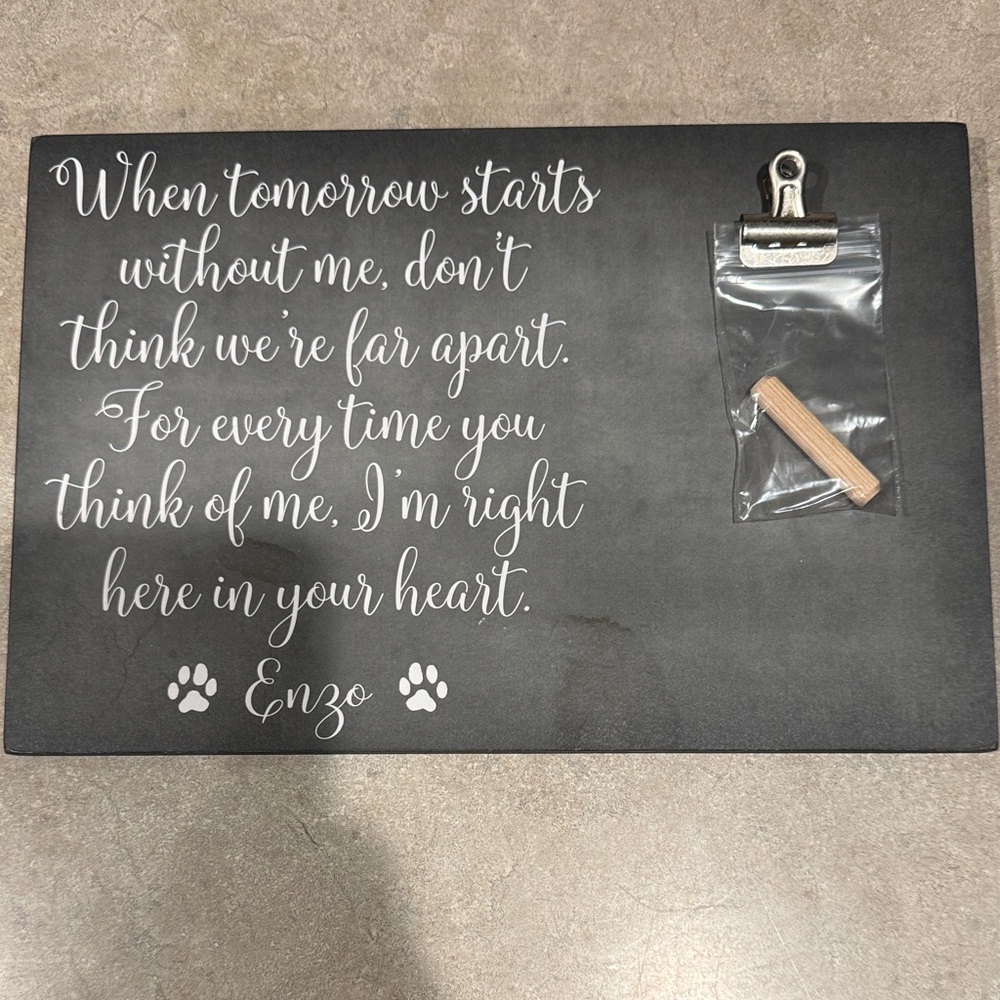 When tomorrow starts
without me, don't
think we're far apart.
For every time you
think of me, I'm right
here in your heart.
Enzo